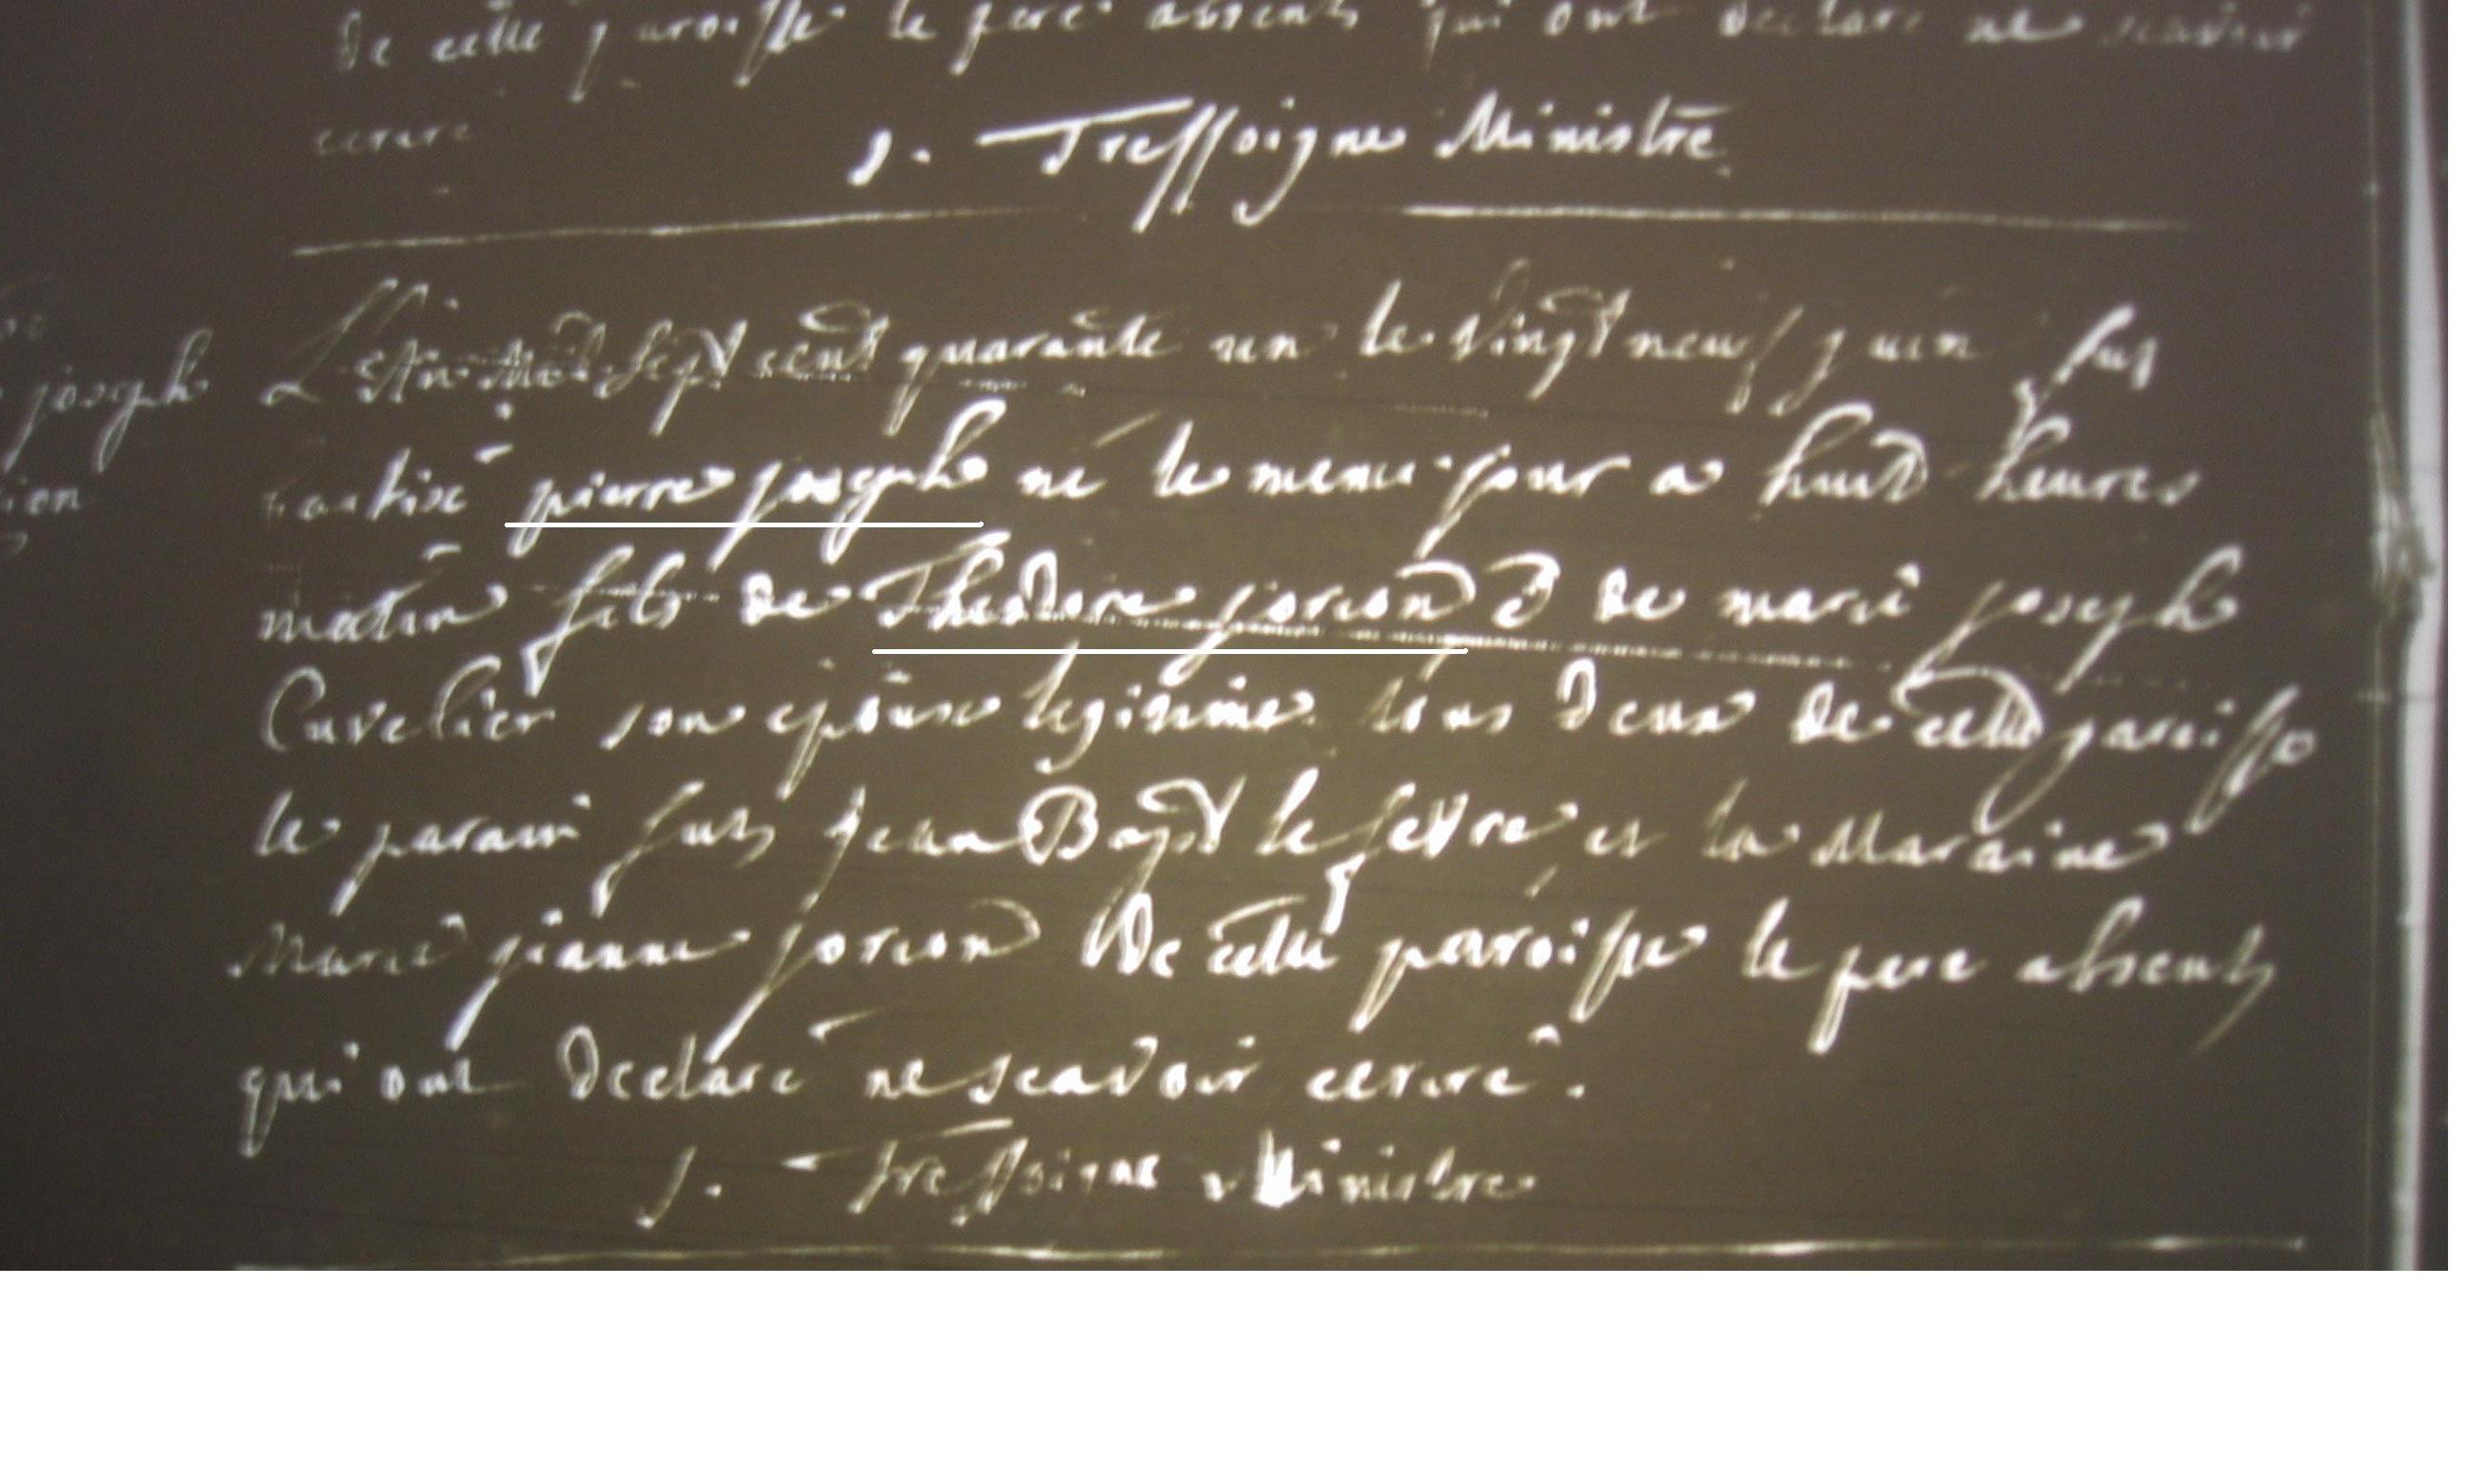 De cette paroisse le pere absent qui ont declaré ne scavoir
ecrire
J. Treffoigne Ministre
joseph
L'an mil sept cent quarante un le vingt neuf juin fut
baptisé pierre joseph né le meme jour a huit heures
matin fils de Theodore jorion et de marie joseph
Cuvelier son epouse legitime tous deux de cette paroisse
le parain fut jean Bapt le fevre et la Maraine
Marie jeanne jorion De cette paroisse le pere absent
qui ont declaré ne scavoir ecrire.
J. Treffoigne Ministre